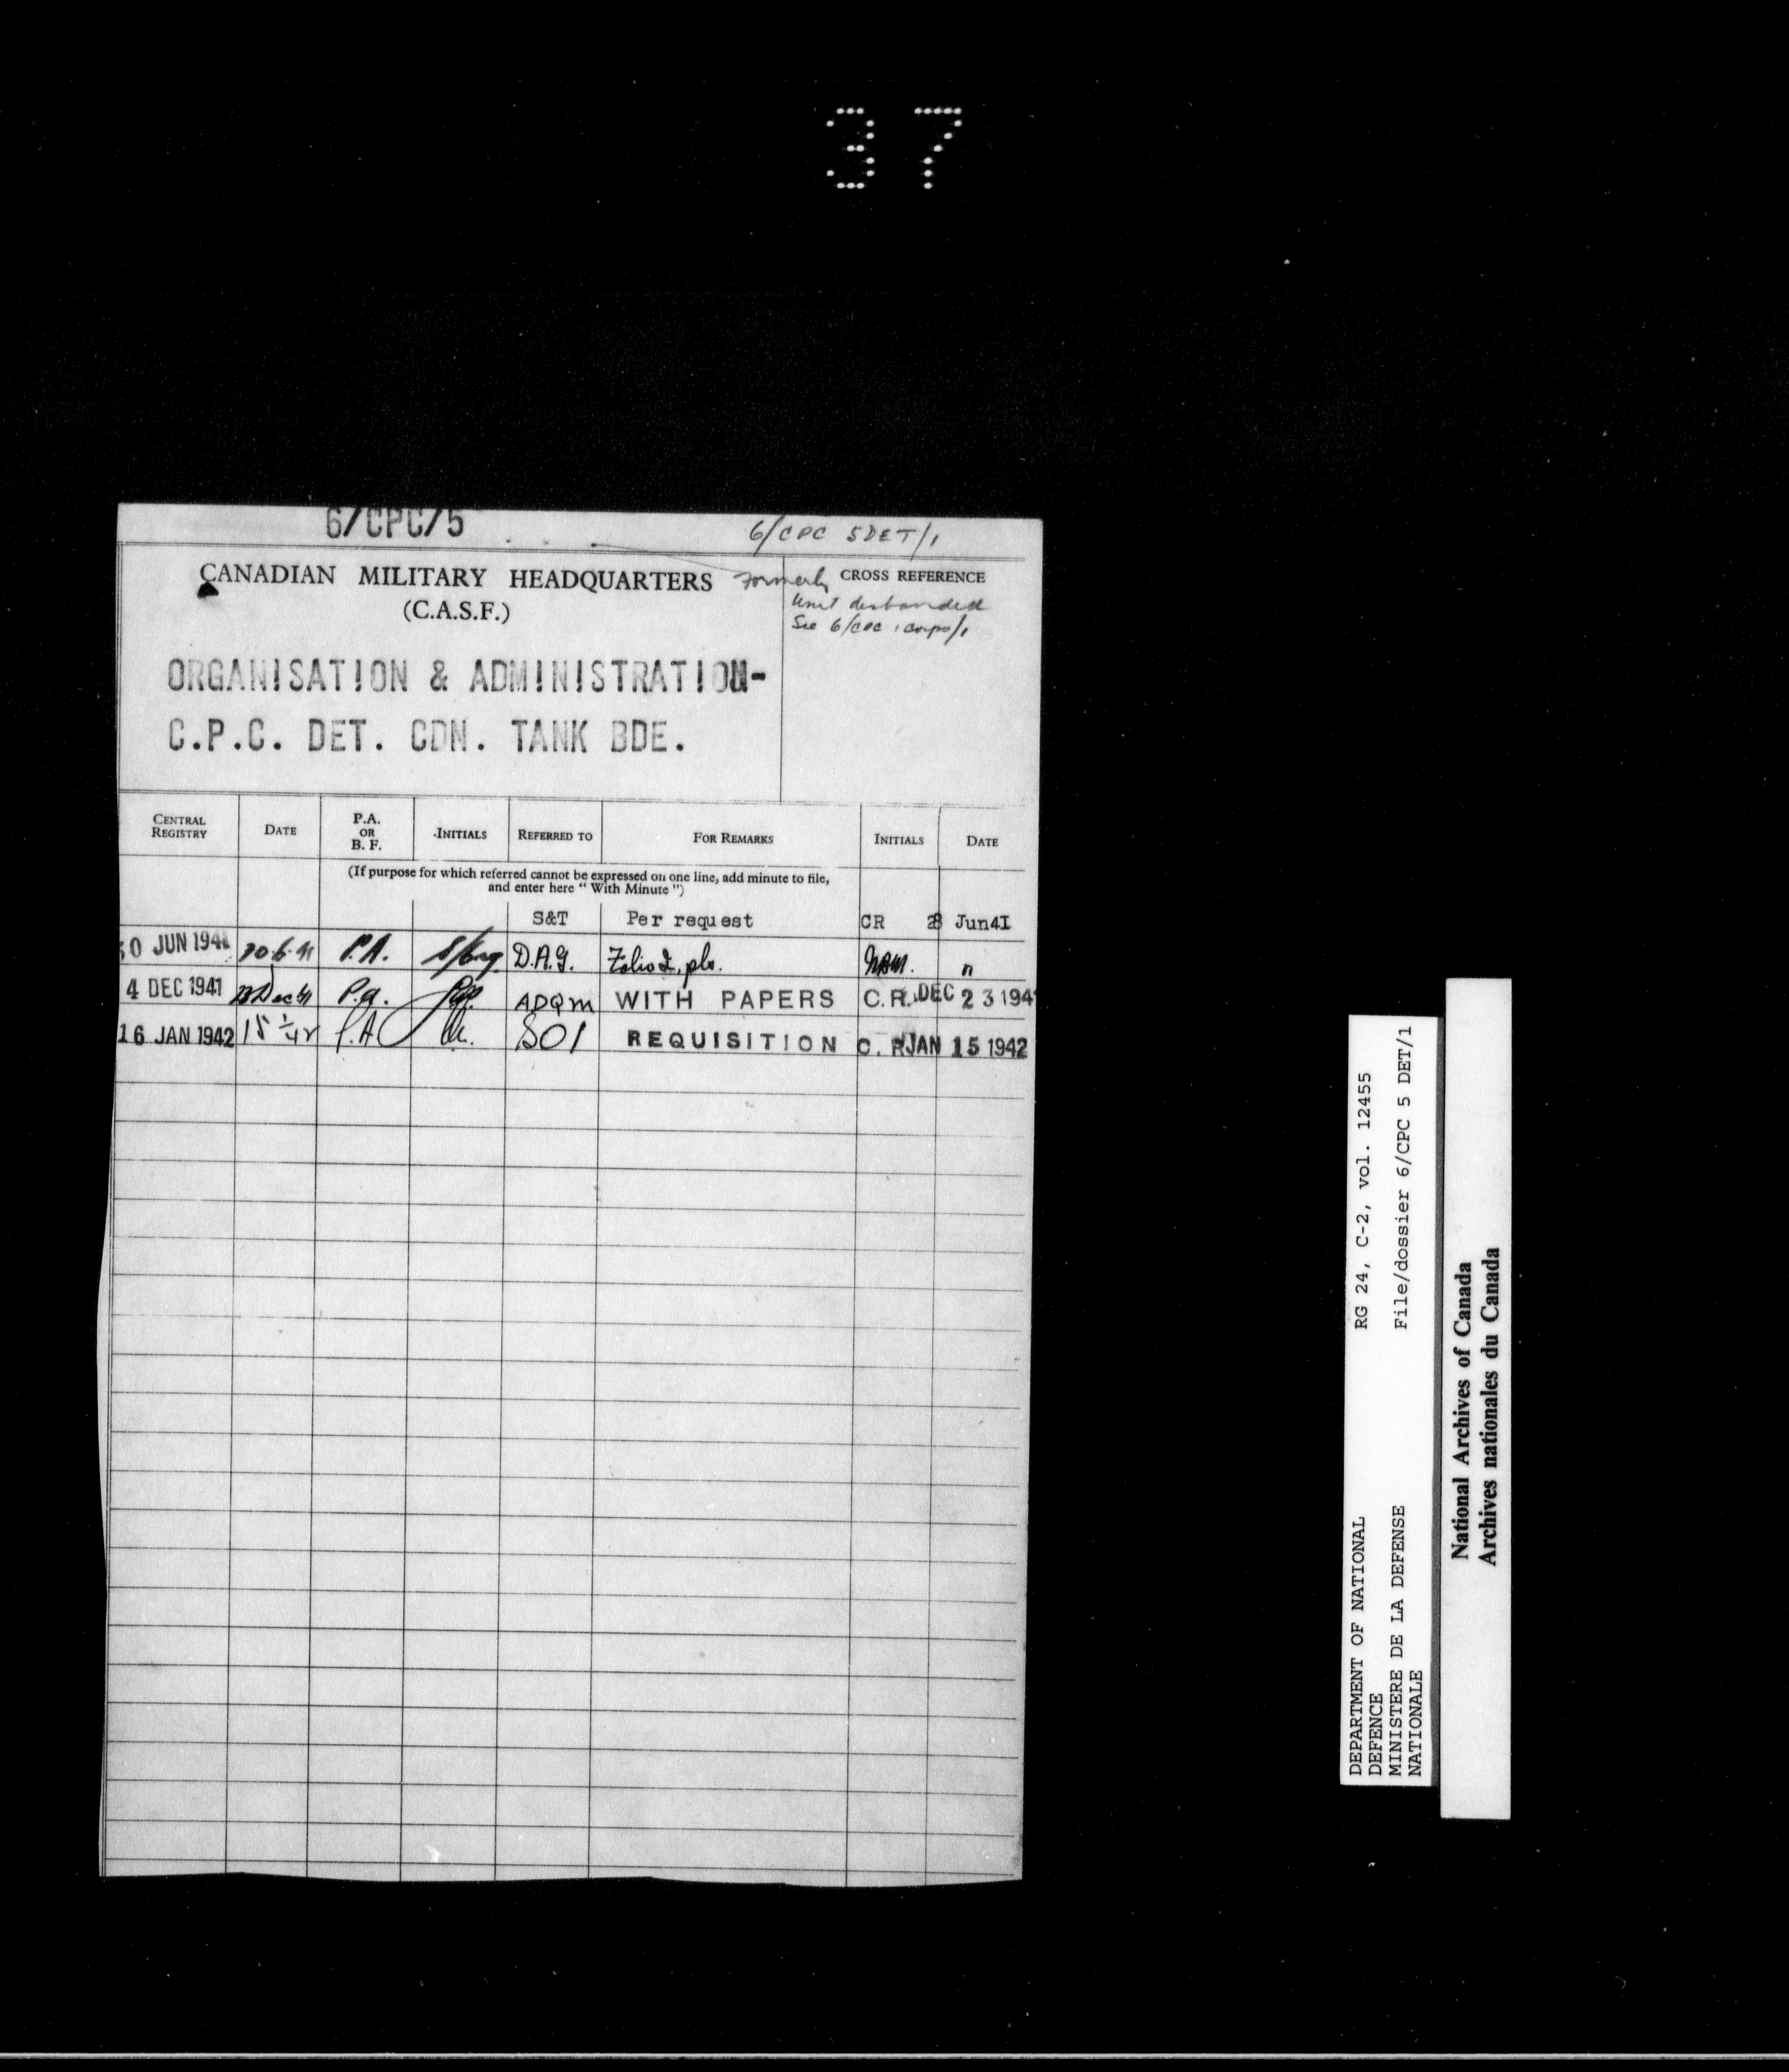 37
6/CPC/5
6/CPC 5DET/1
CANADIAN MILITARY HEADQUARTERS
(C.A.S.F.)
Formerly
CROSS REFERENCE
Unit disbanded
See 6/CPC 1 Corps/1
ORGANISATION & ADMINISTRATION-
C.P.C. DET. CDN. TANK BDE.
CENTRAL REGISTRY DATE P.A. OR B. F. INITIALS REFERRED TO FOR REMARKS INITIALS DATE
(If purpose for which referred cannot be expressed on one line, add minute to file,
and enter here “ With Minute ”)
S&T Per request CR 28 Jun41
0 JUN 1941 30.6.41 P.A. D.A.G. Folio 2, pls. "
4 DEC 1941 23Dec41 P.a. ADQM WITH PAPERS C.R. DEC 23 194
16 JAN 1942 15 1/42 P.A SO1 REQUISITION C. R JAN 15 1942
RG 24, C-2, vol. 12455
File/dossier 6/CPC 5 DET/1
DEPARTMENT OF NATIONAL
DEFENCE
MINISTERE DE LA DEFENSE
NATIONALE
National Archives of Canada
Archives nationales du Canada